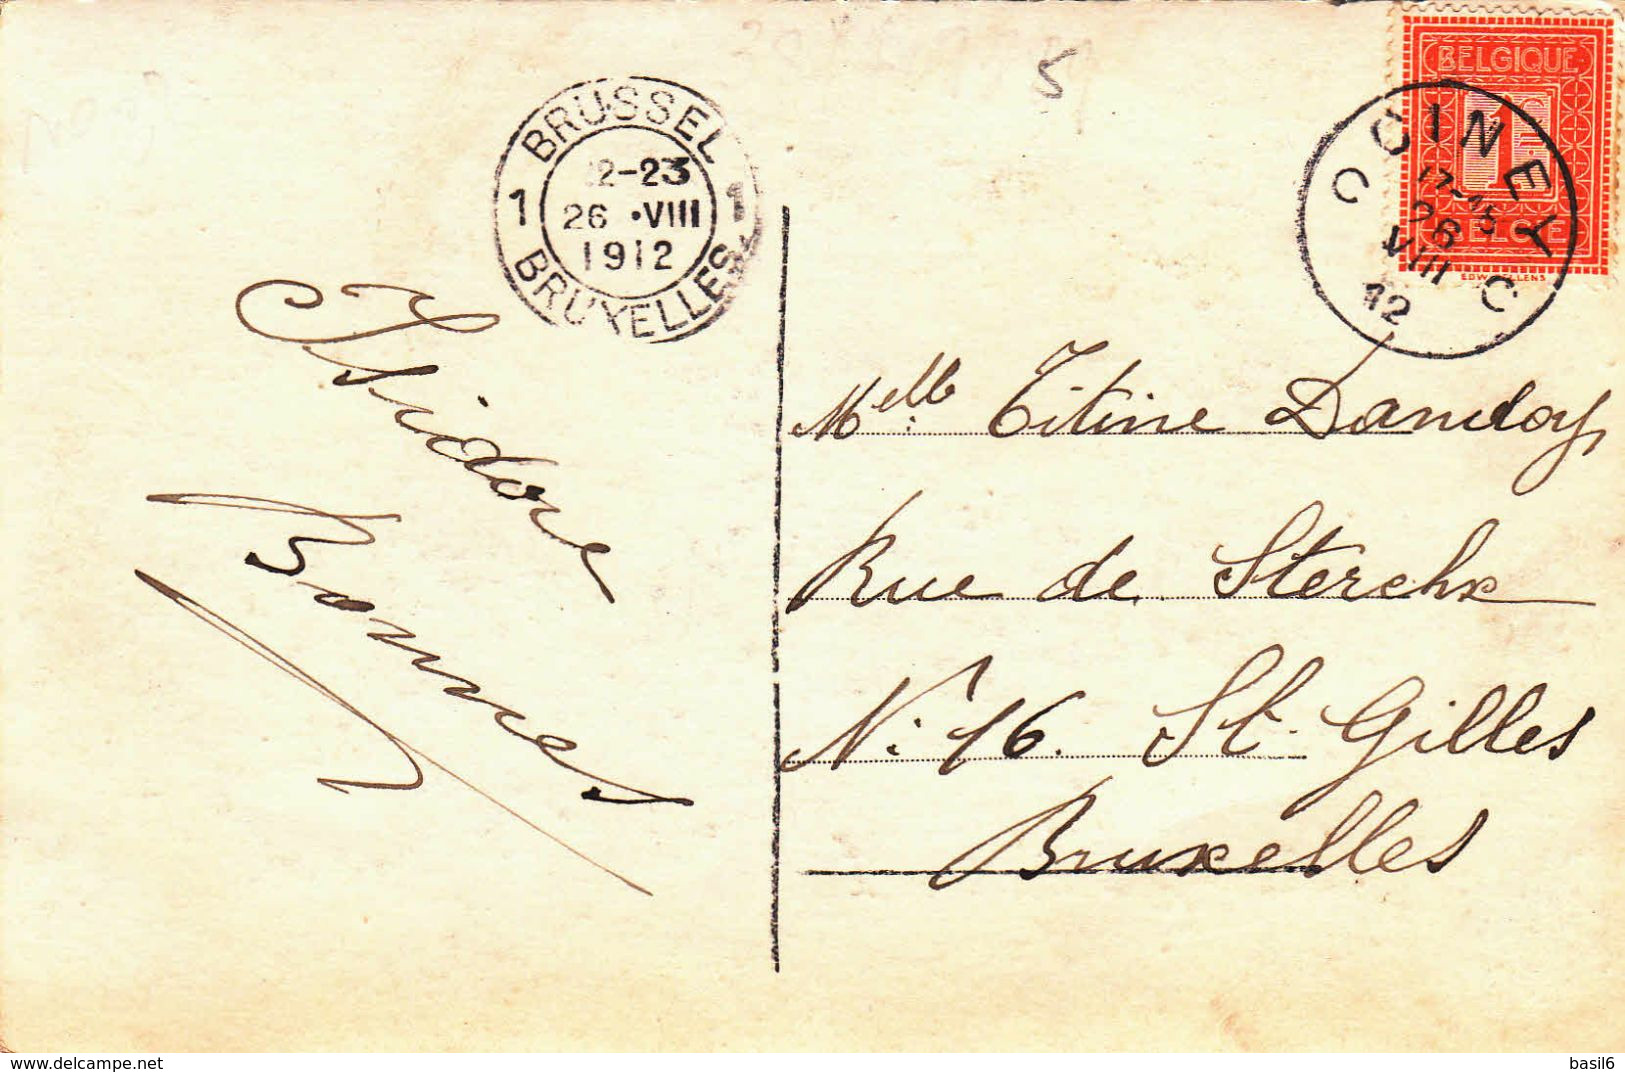 5
BRUSSEL
22-23
1 26 •VIII 1
1912
BRUXELLES
BELGIQUE
1
BELGIE
CINEY
17-15
26
VIII
12
C C
Isidore
Bonnes
Melle Titine Dandoy,
Rue de Sterckx
N: 16. St. Gilles
Bruxelles
www.delcampe.net
basil6